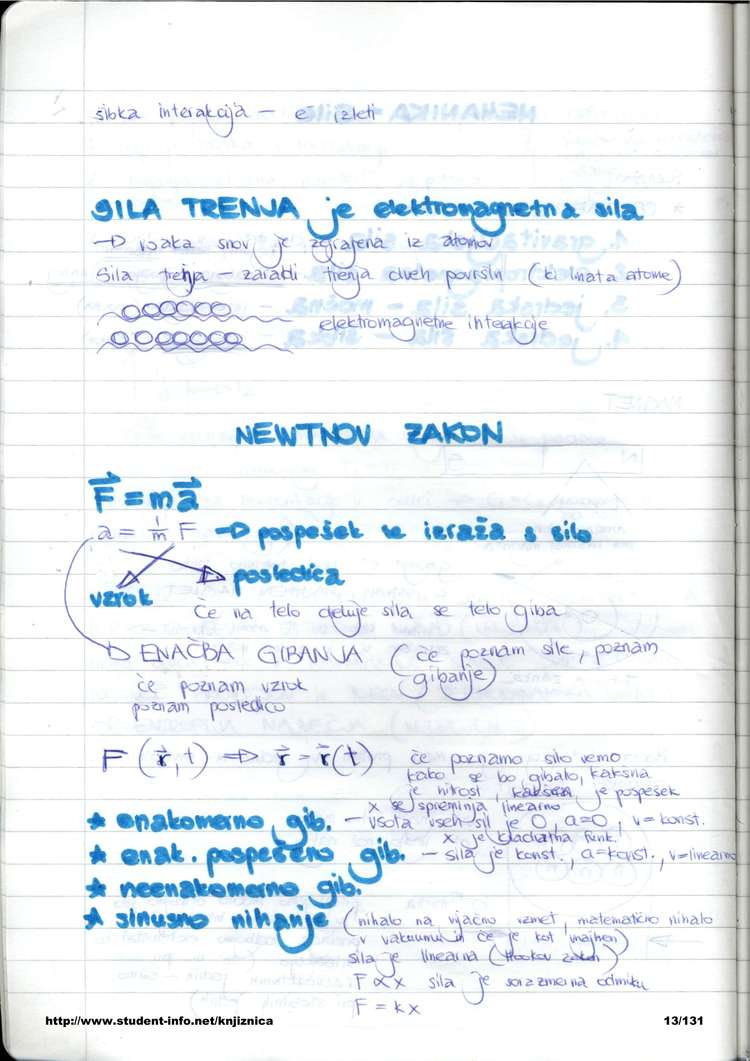 šibka interakcija — e⁻ izleti
SILA TRENJA je elektromagnetna sila
→ vsaka snov je zgrajena iz atomov
Sila trenja – zaradi trenja dveh površin (ki imata atome)
elektromagnetne interakcije
NEWTNOV ZAKON
F⃗ = ma⃗
a = 1/m F → pospešek se izraža s silo
posledica
vzrok
Če na telo deluje sila se telo giba
ENAČBA GIBANJA (če poznam sile, poznam
gibanje)
če poznam vzrok
poznam posledico
F (r⃗,t) ⇒ r⃗ = r⃗(t) če poznamo silo vemo
kako se bo gibalo, kakšna
je hitrost, kakšen je pospešek
x se spreminja linearno
★ enakomerno gib. – vsota vseh sil je 0, a=0, v=konst.
x je kvadratna funk.
★ enak. pospešeno gib. – sila je konst., a=konst., v=linearno
★ neenakomerno gib.
★ sinusno nihanje (nihalo na vijačno vzmet, matematično nihalo
v vakuumu in če je kot majhen)
sila je linearna (Hookov zakon)
F ∝ x sila je sorazmerna odmiku
F = kx
http://www.student-info.net/knjiznica 13/131